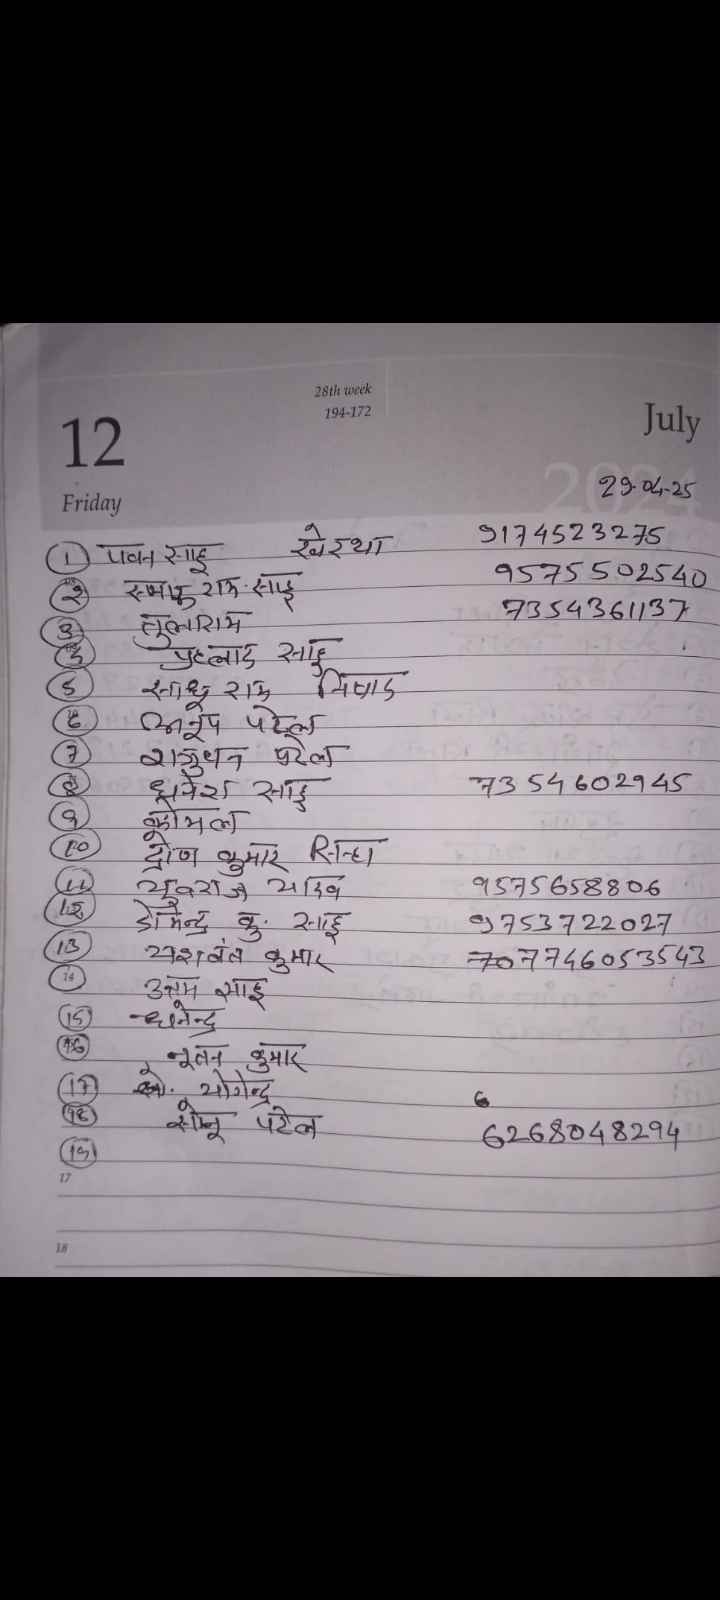 28th week
194-172
12
July
2024
Friday
29-04-25
1 पवन साहू खेरथा 9174523275
2 राम साहू 9575502540
3 तुलाराम 7354361137
प्रहलाद साहू
5 साधू राम निषाद
6 अनूप पटेल
7 शत्रुधन पटेल
8 धनेश साहू 7354602945
9 कोमल
10 द्रोण कुमार सिन्हा
11 युवराज यादव 9575658806
12 डोमेन्द्र कु. साहू 9753722027
13 यशवंत कुमार 7746053543
14 उत्तम साहू
15
16 नूतन कुमार
17 योगेन्द्र 6
18 सोनू पटेल 6268048294
19
17
18